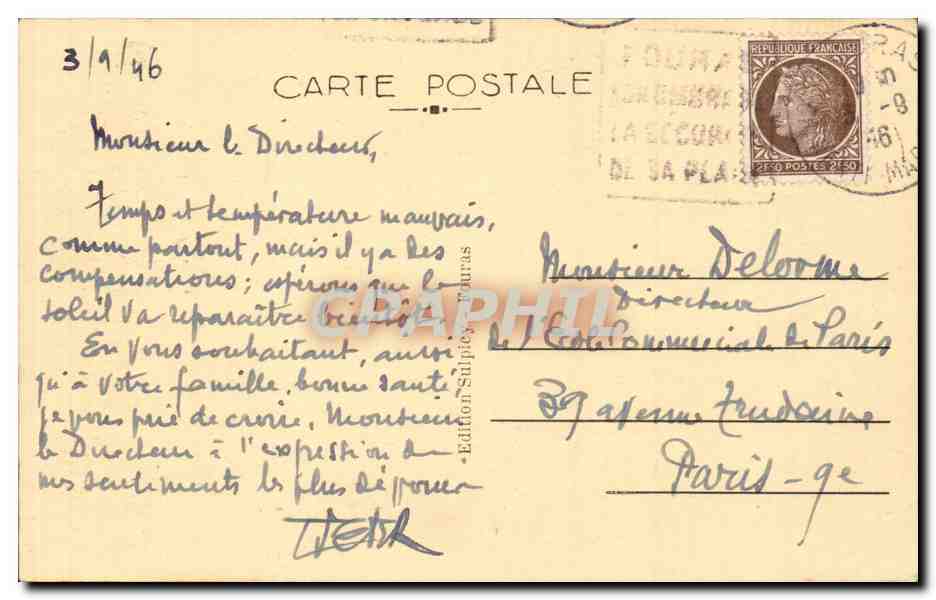 3/9/46
CARTE POSTALE
Monsieur le Directeur,
Temps et température mauvais,
comme partout, mais il y a des
compensations ; espérons que le
soleil va reparaître bientôt.
En vous souhaitant, ainsi
qu'à votre famille, bonne santé
je vous prie de croire, Monsieur
le Directeur à l'expression de
mes sentiments les plus dévoués
Edition Sulpicy, Fouras
CRAPHIL
FOURAS
SA SECURITE
DE SA PLAGE
REPUBLIQUE FRANÇAISE
2F50 POSTES 2F50
Monsieur Delorme
Directeur
de l'Ecole Commerciale de Paris
39 avenue Trudaine
Paris - 9e